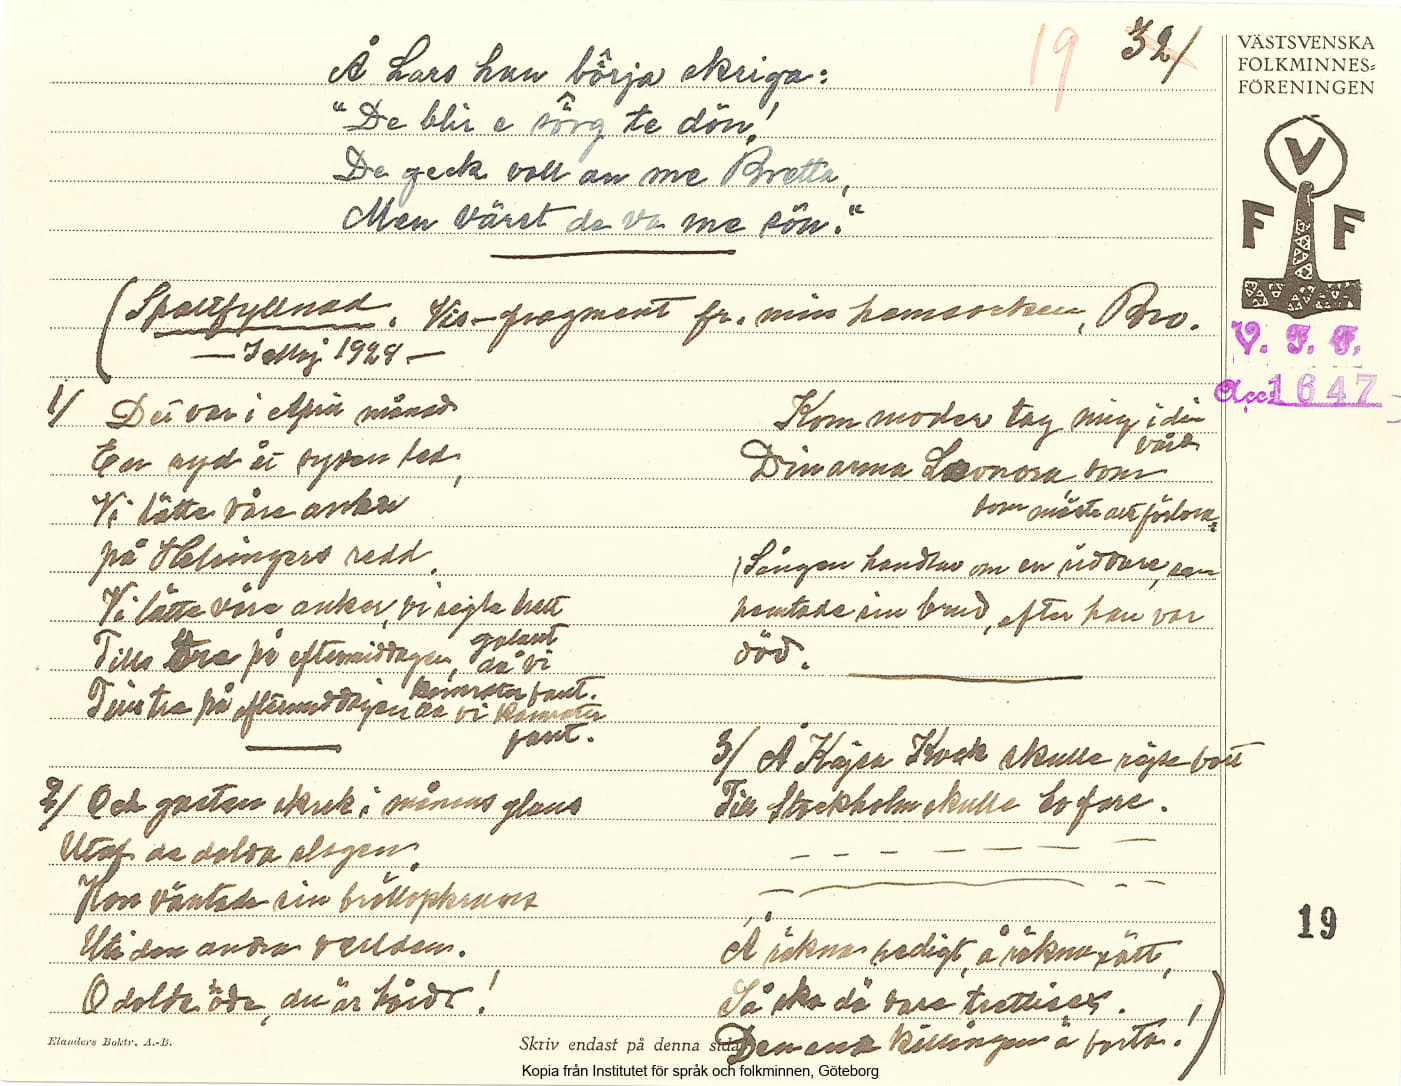 19 32/
VÄSTSVENSKA
FOLKMINNES=
FÖRENINGEN
V
F F
V. F. F.
Acc: 1647
Å Lars han börja skriga:
"De blir e sörg te dön!
De geck väll an me Bretta,
Men väret de va me sön."
(Spaltfyllnad. Vis-fragment fr. min hemsocken, Bro.
1928
1/ Det var i April månad
En syd
Vi lätte våra anker
på Helsingørs redd.
Vi lätte våra anker, vi segla
på eftermiddagen, galant
då vi
på eftermiddagen då vi
fant.
2/ Och gasten skrek i månens glans
Utaf de dolda
Hon väntade sin bröllopskrans
Uti den andra världen.
O dolda öde, du är hård!
Kom moder tag mig i din
vård
Din arma Leonora som
som måste allt förlora.
(Sången handlar om en riddare, som
hemtade sin brud, efter han var
död.
3/ Å Kajsa Kock skulle bort
Till Stockholm skulle fara.
Å räkna redigt, å räkna rätt,
Så ska dä vara trettisex.
Den ena killingen ä borta!)
19
Elanders Boktr. A.-B.
Skriv endast på denna sida
Kopia från Institutet för språk och folkminnen, Göteborg